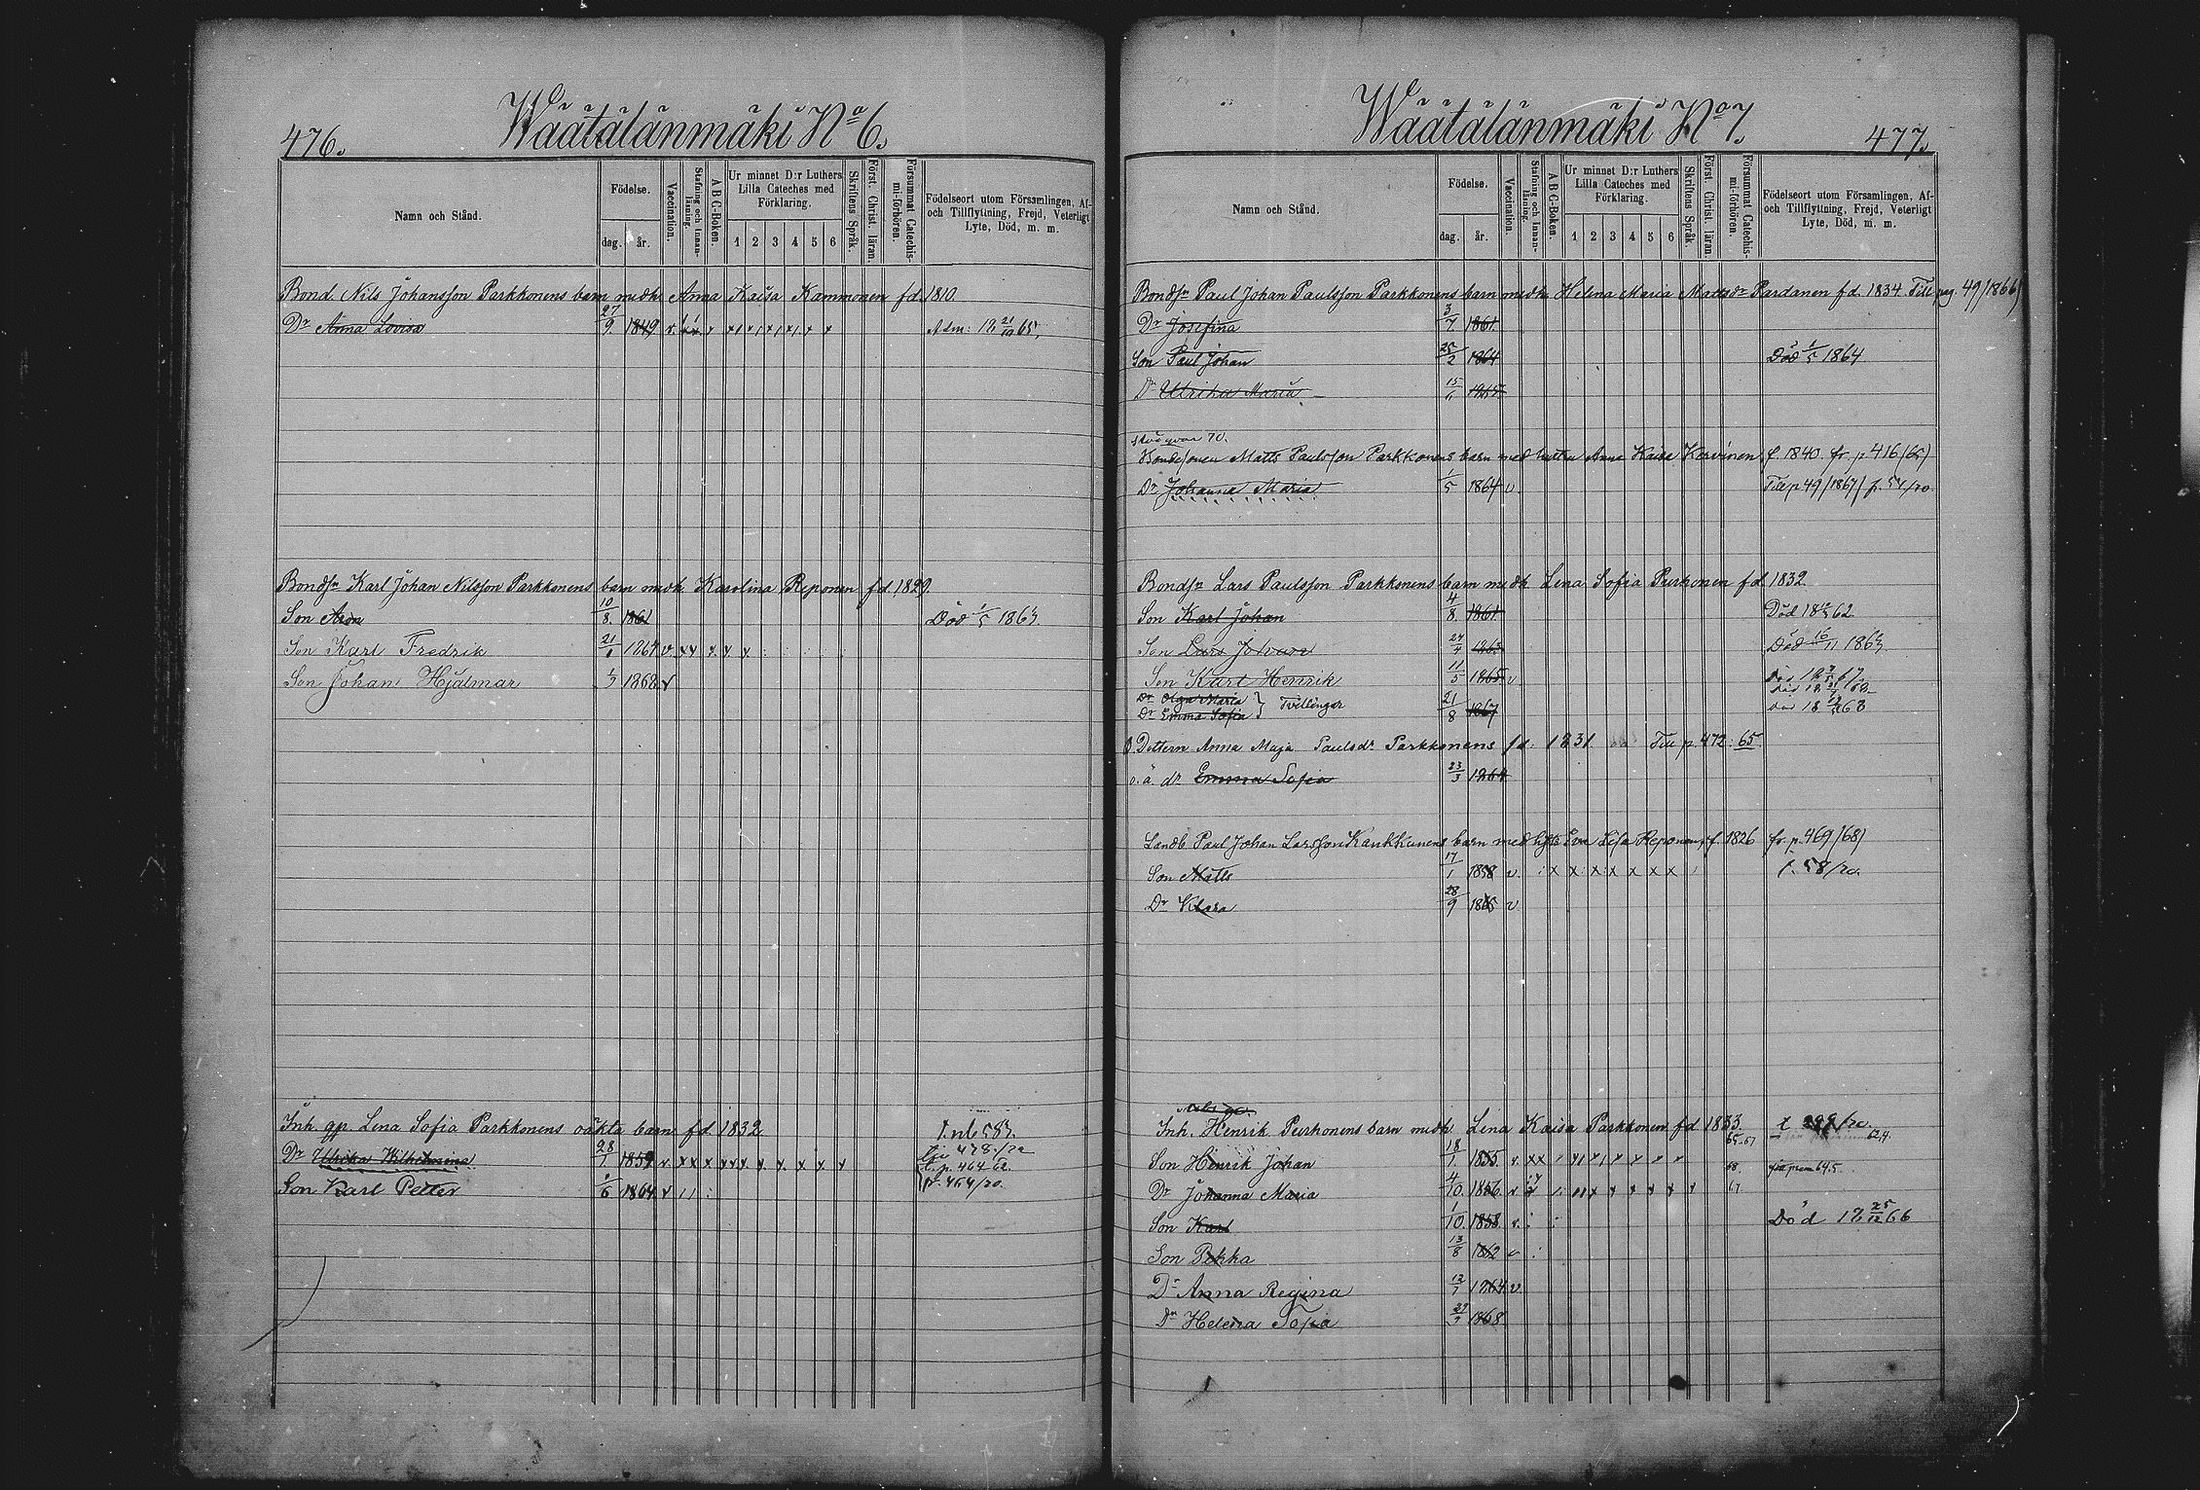 476.
Wäätälänmäki No 6.
Namn och Stånd.
Födelse.
dag.
år.
Vaccination.
Stafning och Innanläsning.
A B C-Boken.
Ur minnet D:r Luthers
Lilla Cateches med
Förklaring.
1 2 3 4 5 6
Skriftens Språk.
Först. Christ. läran.
Försummat Catechismi-förhören.
Födelseort utom Församlingen, Af-
och Tillflyttning, Frejd, Veterligt
Lyte, Död, m. m.
Bond. Nils Johansson Parkkonens barn medh Anna Kaisa Kammonen fd. 1810.
Dr Anna Lovisa 27/9. 1849 Adm: 18 21/10 65.
Bondsn Karl Johan Nilsson Parkkonens barn medh Karolina Reponen fd. 1829.
Son Aron 10/8. 1861 Död 1/5 1863.
Son Karl Fredrik 21/1 1864 v. x x x. x. x
Son Johan Hjalmar 1868 v
Inh. qp. Lena Sofia Parkkonens oäkta barn fd 1832.
Dr Ulrika Wilhelmina 28/7. 1859
t. p. 464 62.
Son Karl Petter 1/6 1864 p. 464/70.
Wäätälänmäki No 7.
477.
Namn och Stånd.
Födelse.
dag.
år.
Vaccination.
Stafning och Innanläsning.
A B C-Boken.
Ur minnet D:r Luthers
Lilla Cateches med
Förklaring.
1 2 3 4 5 6
Skriftens Språk.
Först. Christ. läran.
Försummat Catechismi-förhören.
Födelseort utom Församlingen, Af-
och Tillflyttning, Frejd, Veterligt
Lyte, Död, m. m.
Bondsn Paul Johan Paulsson Parkkonens barn medh Helena Maria Mattsdr Pardanen fd. 1834. Till pag. 49/1866)
Dr Josefina 3/7. 1861.
Son Paul Johan 25/2 1864 Död 1/5 1864
Dr Ulrika Maria 15/6 1865
Bondesonen Matts Paulsson Parkkonens barn med hustru Anna Kaisa Kervinen f. 1840. fr. p. 416/65)
Dr Johanna Maria 1/5 1864 v. Till p 49/1867/ p. 51/70.
Bondsn Lars Paulsson Parkkonens barn medh Lena Sofia Purhonen fd. 1832
Son Karl Johan 4/8. 1861. Död 62
Son Lars Johan 1863 Död 16/11 1863
Son Karl Henrik 11/5 1865 v
Dr Olga Maria } Tvillingar
Dr Emma Sofia 21/8 1867
Dottern Anna Maja Paulsdr Parkkonens fd: 1831 Till p. 472: 65.
o. ä. dr Emma Sofia 23/3 1864
Landb. Paul Johan Larsson Kaukkunens barn med hust Eva Lisa Reponen, f. 1826 fr. p. 469/68)
Son Matts 17/1 1858 v. x x x x x x x f. 58/70.
Dr Klara 28/9 1865 v
Inh. Henrik Purhonens barn medh Lena Kaisa Parkkonen fd 1833.
Son Henrik Johan 18/1. 1855.
Dr Johanna Maria 4/10. 1856
Son Karl 1/10. 1858 Död 18 25/12 66
Son Pekka 13/8 1862 v
Dr Anna Regina 1864 v
Dr Helena Sofia 1868